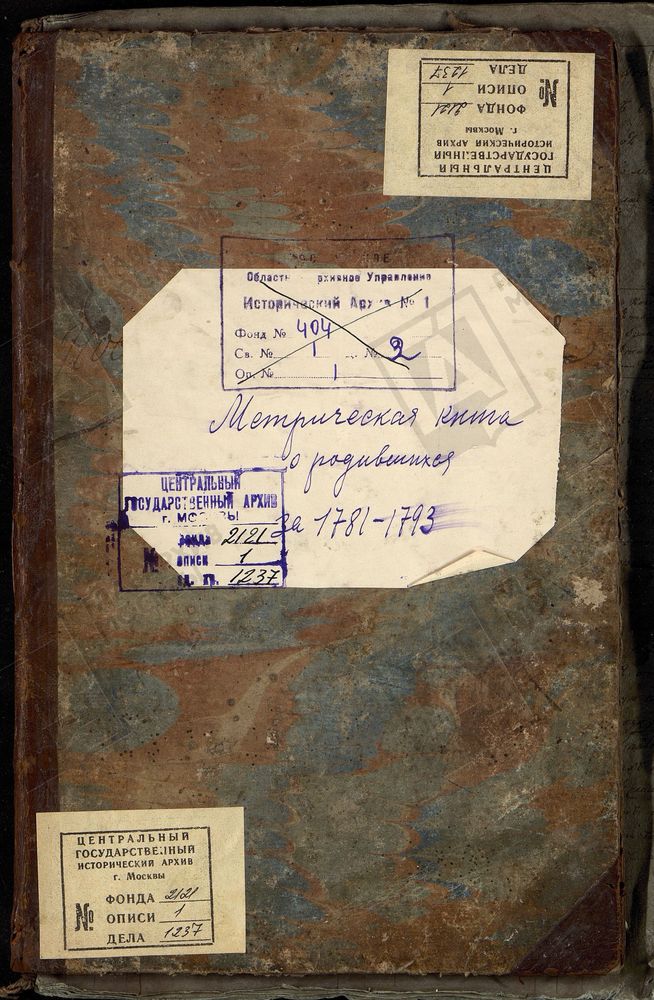 ЦЕНТРАЛЬНЫЙ
ГОСУДАРСТВЕННЫЙ
ИСТОРИЧЕСКИЙ АРХИВ
г. Москвы
№
ФОНДА 2121
ОПИСИ 1
ДЕЛА 1237
Архивное Управление
Исторический Архив № 1
Фонд № 404
Св. № 1 д. № 2
Оп. № 1
Метрическая книга
о родившихся
за 1781-1793
ЦЕНТРАЛЬНЫЙ
ГОСУДАРСТВЕННЫЙ АРХИВ
г. МОСКВЫ
№
фонда 2121
описи 1
ед. хр. 1237
ЦЕНТРАЛЬНЫЙ
ГОСУДАРСТВЕННЫЙ
ИСТОРИЧЕСКИЙ АРХИВ
г. Москвы
№
ФОНДА 2121
ОПИСИ 1
ДЕЛА 1237